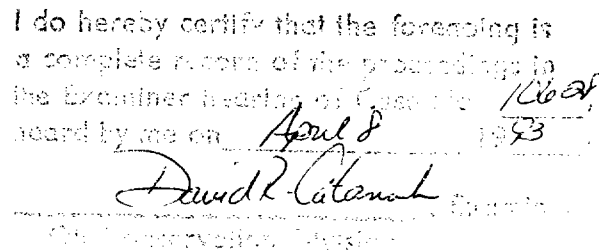 I do hereby certify that the foregoing is
a complete record of the proceedings in
the Examiner hearing of Case No.
heard by me on April 8 1993.
David R. Catanach, Examiner
Oil Conservation Division